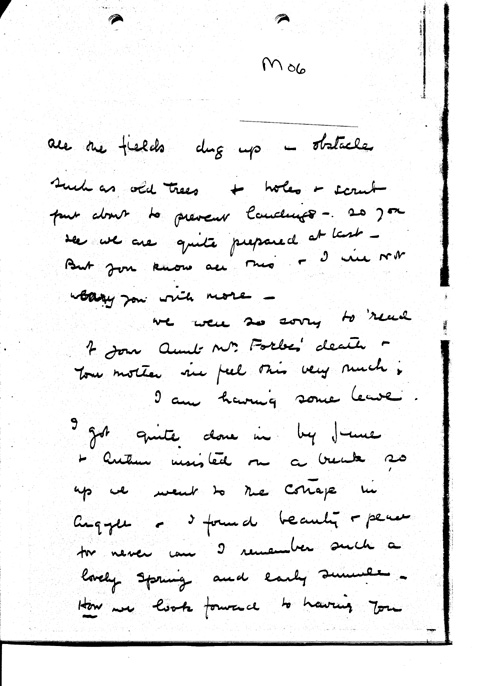 M06
all the fields dug up - obstacles
such as old trees + holes + scrub
put about to prevent landings -. So you
see we are quite prepared at last -
But you know all this + I will not
weary you with more -
We were so sorry to read
of your Aunt Mrs. Forbes' death -
Your mother will feel this very much.
I am having some leave.
I got quite done in by June
+ Arthur insisted on a break so
up we went to the cottage in
Argyll + I found beauty + peace
for never can I remember such a
lovely Spring and early summer -
How we look forward to having you